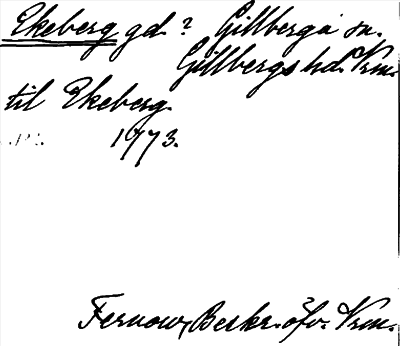 Ekeberg gd? Gillberga sn.
Gillbergs hd. Vrm.
til Ekeberg.
1773.
Fernow, Beskr. öfv. Vrm.